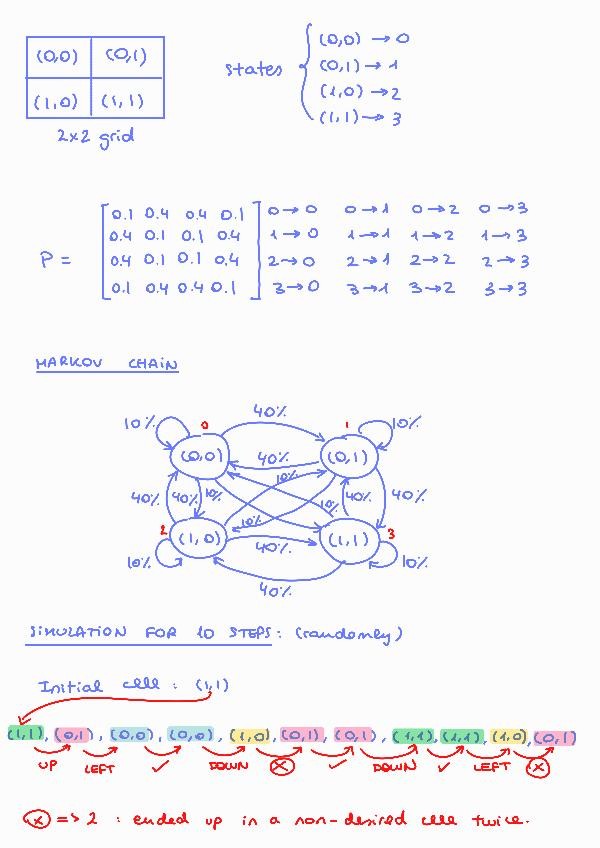 (0,0) (0,1)
(1,0) (1,1)
2x2 grid
states
(0,0) → 0
(0,1) → 1
(1,0) → 2
(1,1) → 3
P =
0.1 0.4 0.4 0.1 0→0 0→1 0→2 0→3
0.4 0.1 0.1 0.4 1→0 1→1 1→2 1→3
0.4 0.1 0.1 0.4 2→0 2→1 2→2 2→3
0.1 0.4 0.4 0.1 3→0 3→1 3→2 3→3
MARKOV CHAIN
10% 0 40% 1 10%
(0,0) 40% (0,1)
10%
40% 40% 10% 10% 40% 40%
2 10% 3
(1,0) 40% (1,1)
10% 10%
40%
SIMULATION FOR 10 STEPS: (randomly)
Initial cell : (1,1)
(1,1), (0,1), (0,0), (0,0), (1,0), (0,1), (0,1), (1,1), (1,1), (1,0), (0,1)
UP LEFT ✓ DOWN X ✓ DOWN ✓ LEFT X
X => 2 : ended up in a non-desired cell twice.